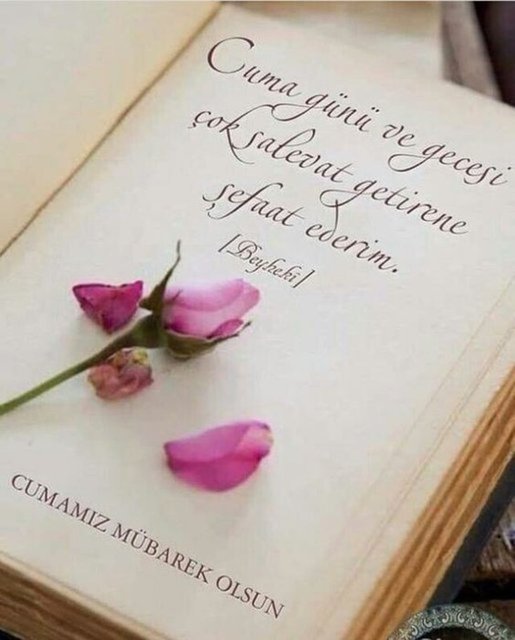 Cuma günü ve gecesi
çok salevat getirene
şefaat ederim.
[Beyheki]
CUMAMIZ MÜBAREK OLSUN